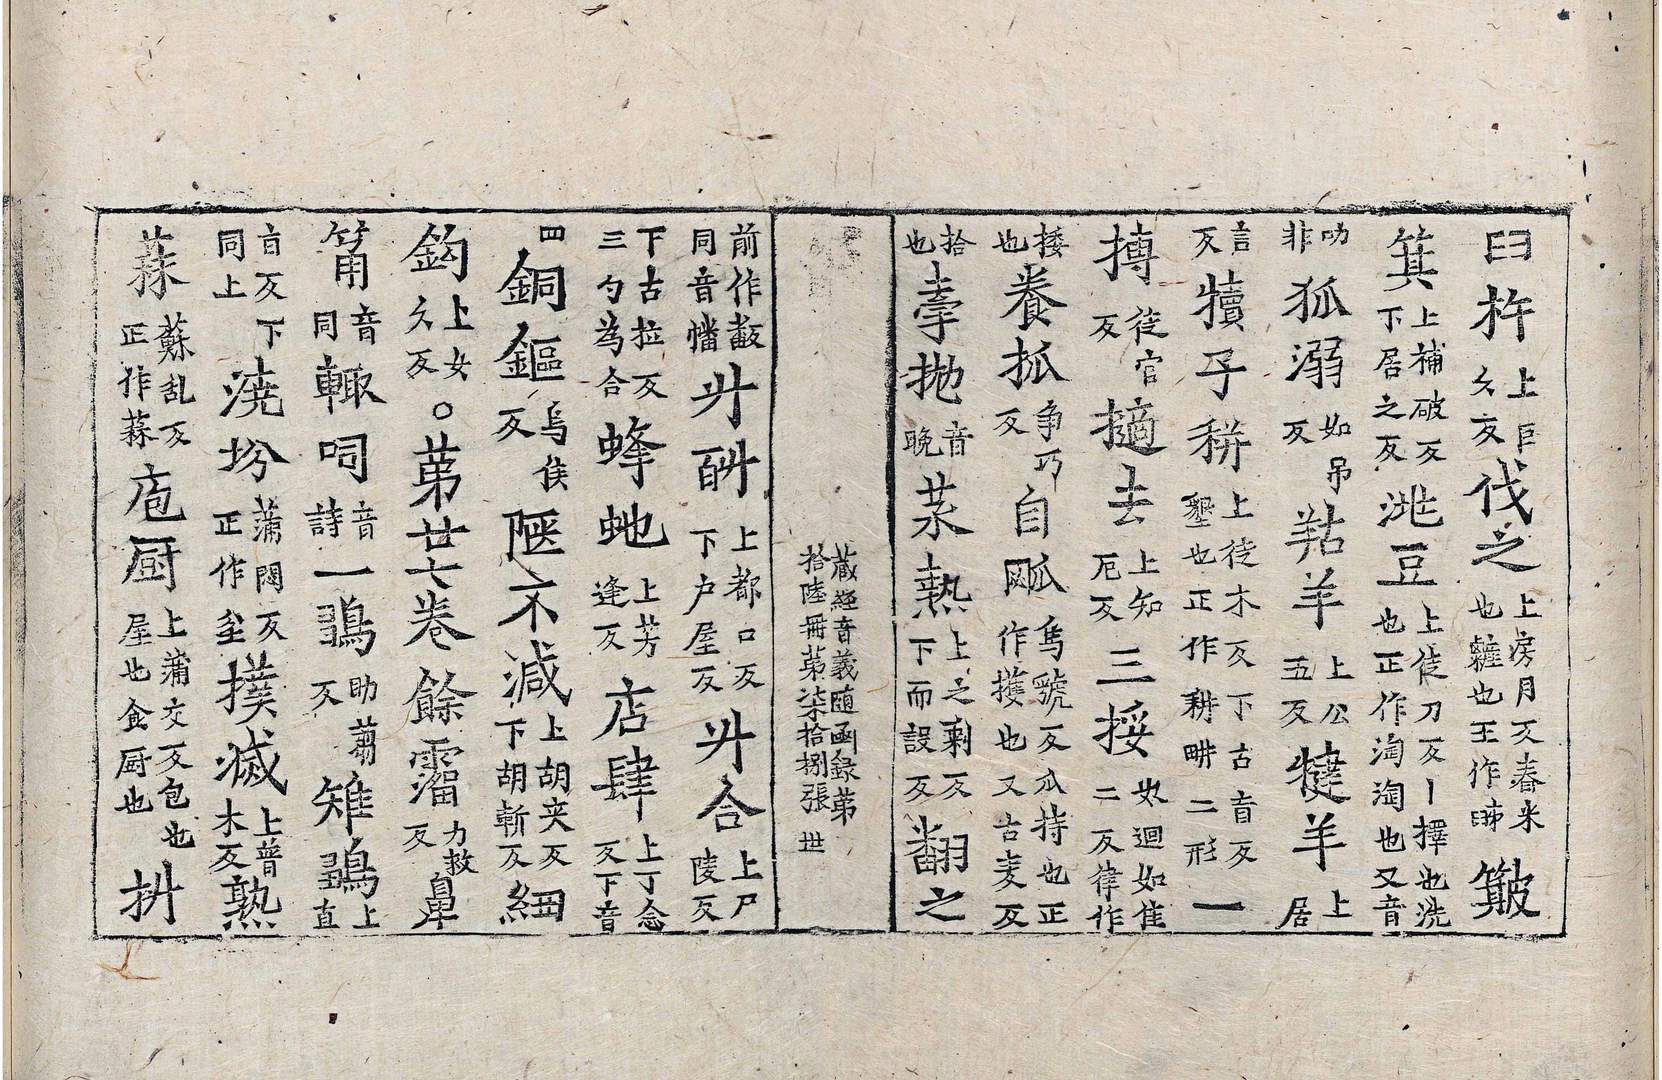 臼杵上巨久反伐之上房月反舂米也䊳也玉作𦥛簸
箕上補破反下居之反洮豆上徒刀反丨擇也洗也正作淘淘也又音
叨非狐溺如吊反羖羊上公五反犍羊上居
言反犢子耕上徒木反下古盲反墾也正作耕畊二形一
摶徒官反擿去上知厄反三挼奴迴如隹二反律作
捼也養抓争巧反自㼌烏虢反爪持也正作擭也又古麦反
拾也𡙇抛音晩菜𤍠上之剩反下而設反翻之
藏經音義随函録第
拾陸冊第柒拾捌張 世
前作㪵同音幡廾㪷上都口反下户屋反廾合上尸陵反
下古拉反三勺為合蜂虵上芳逢反店肆上丁念反下音
四銅鏂烏侯反陿不減上胡夾反下胡斬反細
鈎上女久反○第廿七卷餘霤力救反鼻
筩音同輙呞音詩一鶵助蒭反雉鶵上直
盲反下同上澆坋蒲悶反正作坌撲滅上普木反熟
蒜蘇乱反正作蒜庖厨上蒲交反包也屋也食厨也抍